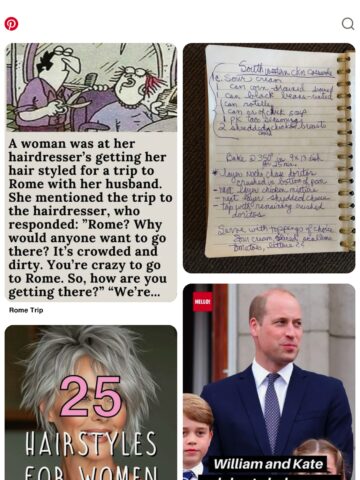 A woman was at her
hairdresser's getting her
hair styled for a trip to
Rome with her husband.
She mentioned the trip to
the hairdresser, who
responded: "Rome? Why
would anyone want to go
there? It's crowded and
dirty. You're crazy to go
to Rome. So, how are you
getting there?" "We're...
Rome Trip
25
HAIRSTYLES
FOR WOMEN
Southwestern Chn Casserole
Sour cream
1 can corn-drained
1 can black beans
1 can rotelle
1 can of chick soup
1 pk taco seasoning
2 shredded chicken breasts
Bake @ 350 in 9x13 dish
crushed in bottom of pan
next layer chicken mixture
next layer shredded cheese
top with remaining crushed
doritos
Serve with toppings of choice
sour cream,
tomatoes, lettuce
HELLO!
William and Kate